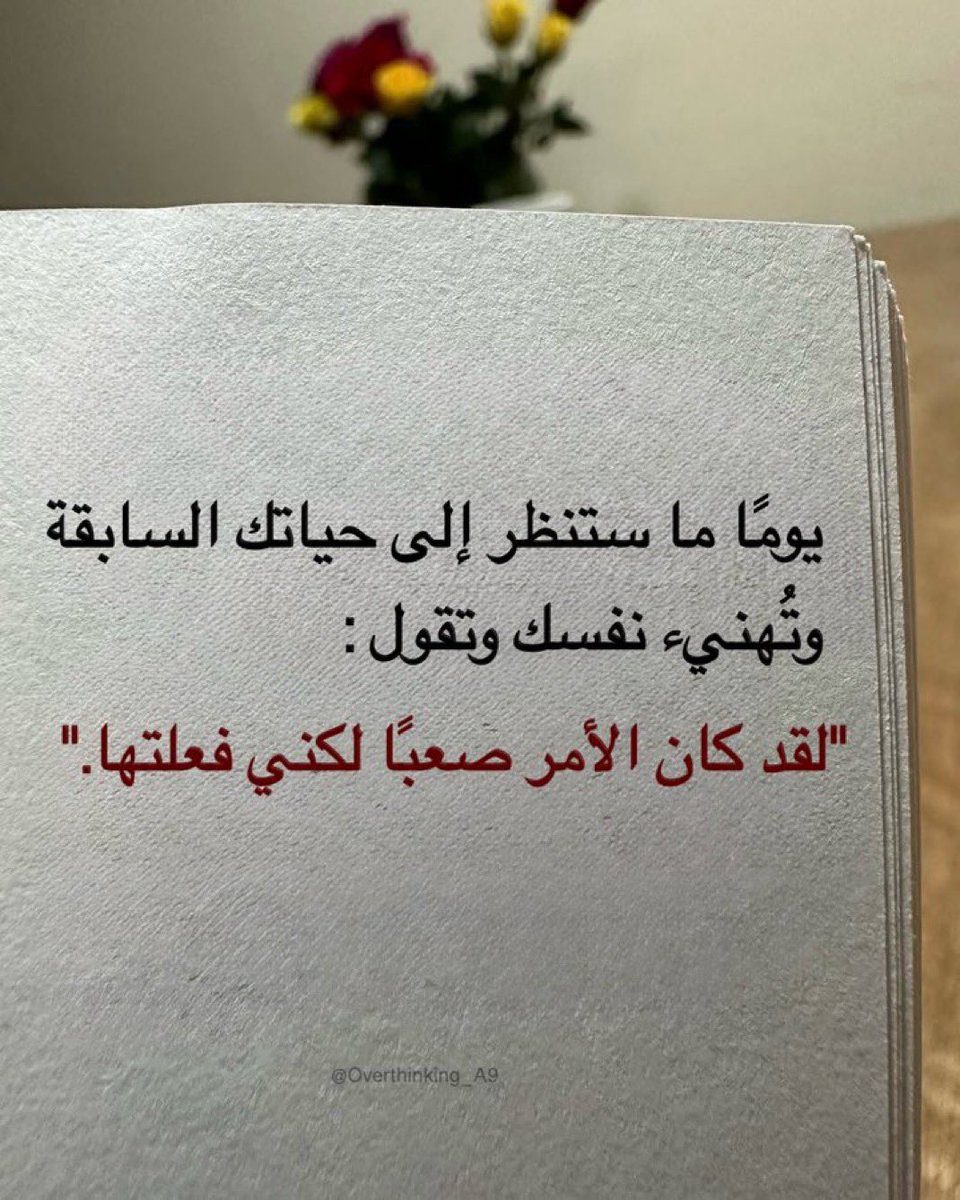 يومًا ما ستنظر إلى حياتك السابقة
وتُهنيء نفسك وتقول :
"لقد كان الأمر صعبًا لكني فعلتها."
@Overthinking_A9